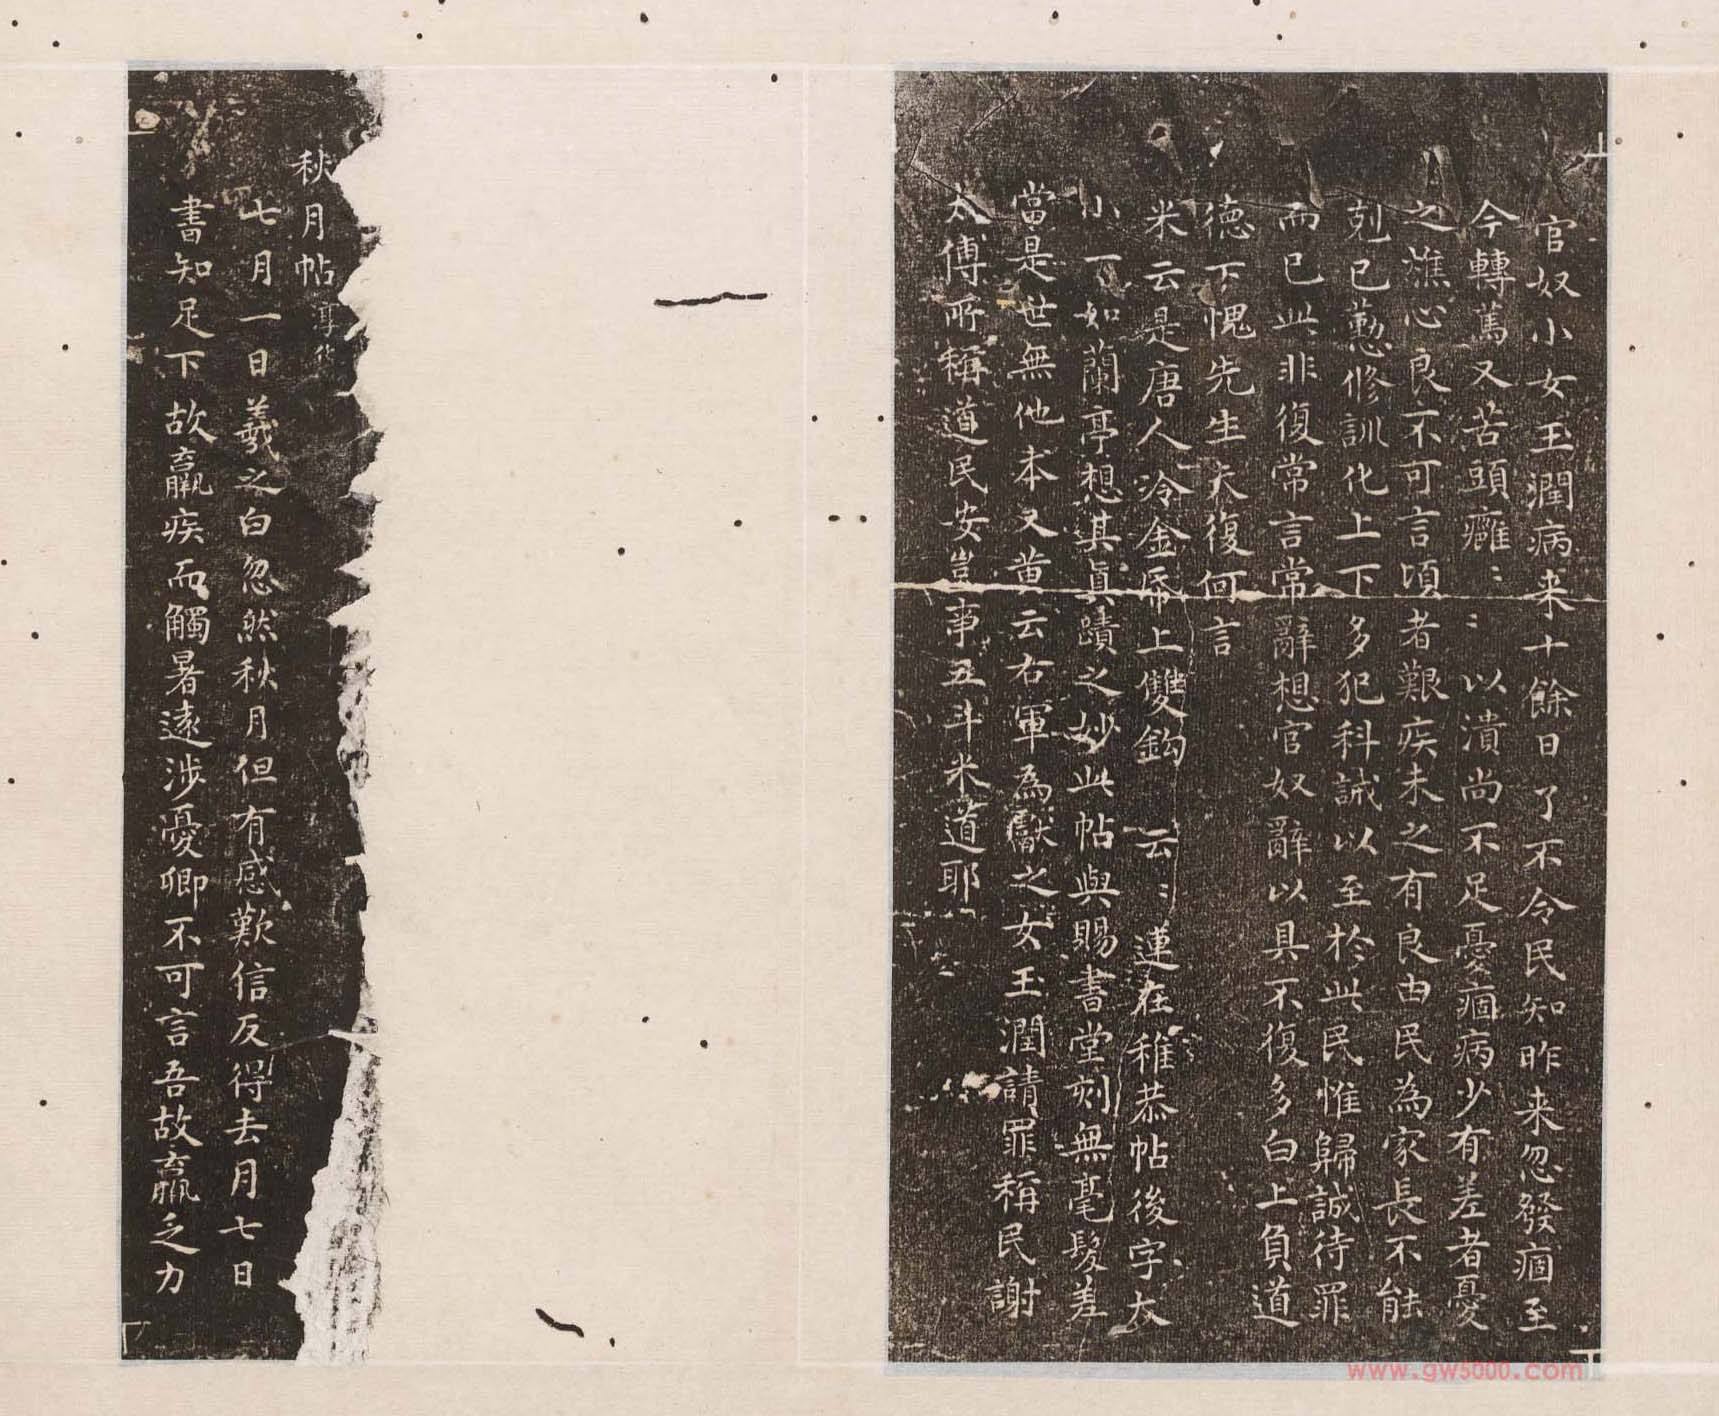 官奴小女玉潤病来十餘日了不令民知昨来忽發痼至
今轉篤又苦頭癰⺀⺀以潰尚不足憂痼病少有差者憂
之燋心良不可言頃者艱疾未之有良由民為家長不能
剋己懃修訓化上下多犯科誡以至於此民惟歸誠待罪
而已此非復常言常辭想官奴辭以具不復多白上負道
德下愧先生夫復何言
米云是唐人冷金帋上雙鈎 云⺀蓮在稚恭帖後字大
小一如蘭亭想其真蹟之妙此帖與賜書堂刻無毫髮差
當是世無他本又黄云右軍為獻之女玉潤請罪稱民謝
太傅所稱道民安豈事五斗米道耶
秋月帖
七月一日羲之白忽然秋月但有感歎信反得去月七日
書知足下故羸疾而觸暑遠涉憂卿不可言吾故羸乏力
www.gw5000.com